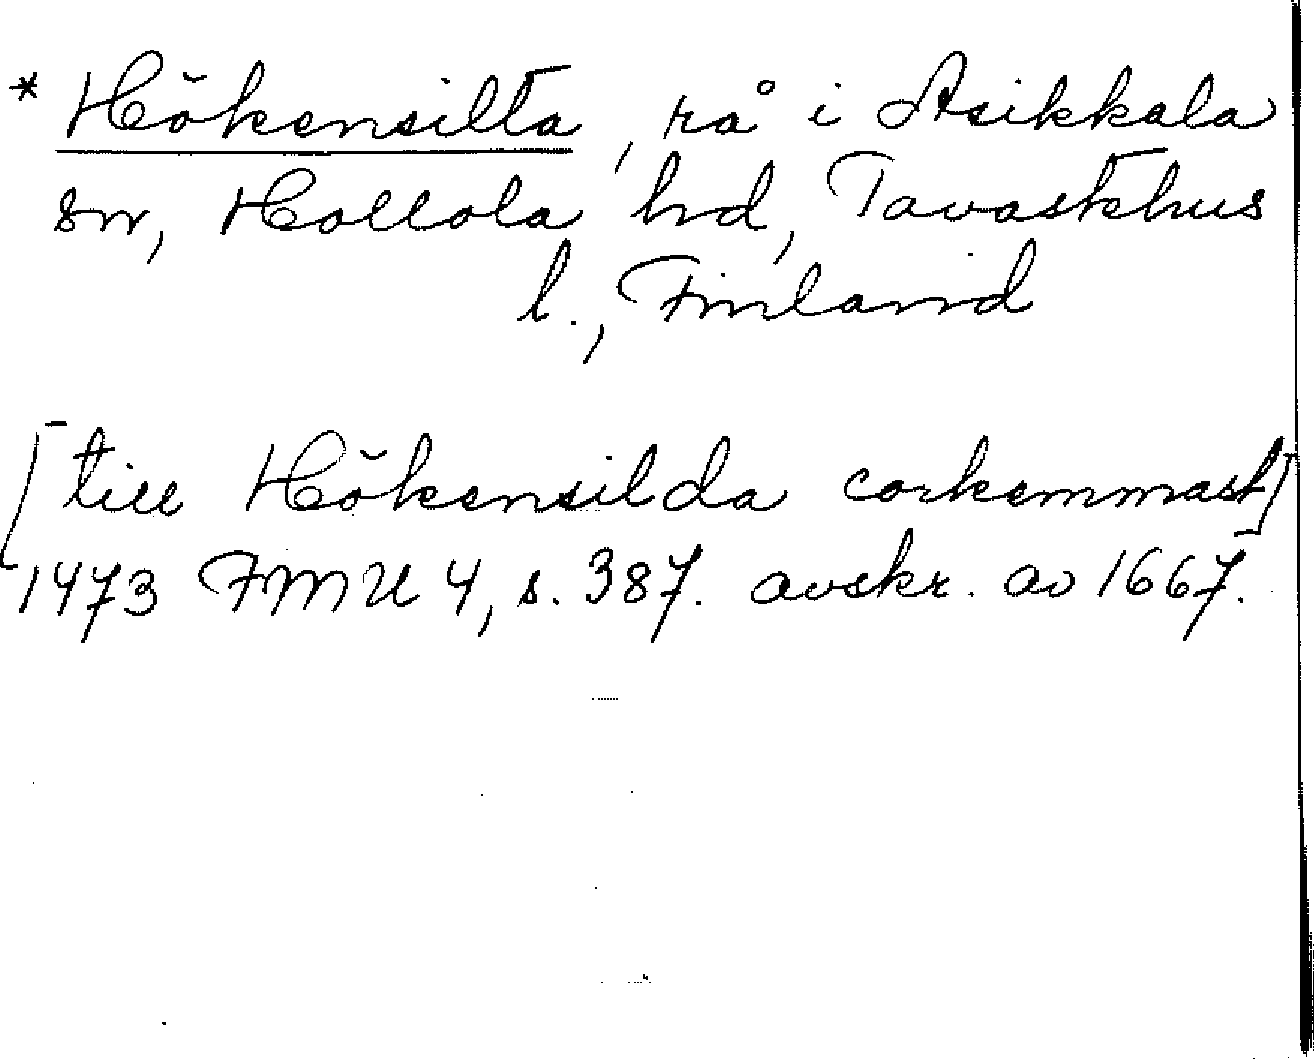 * Hökensilta, rå i Asikkala
sn, Hollola hd, Tavastehus
l., Finland
[till Hökensilda corkemmast]
1473 FMU 4, s. 387. avskr. av 1667.